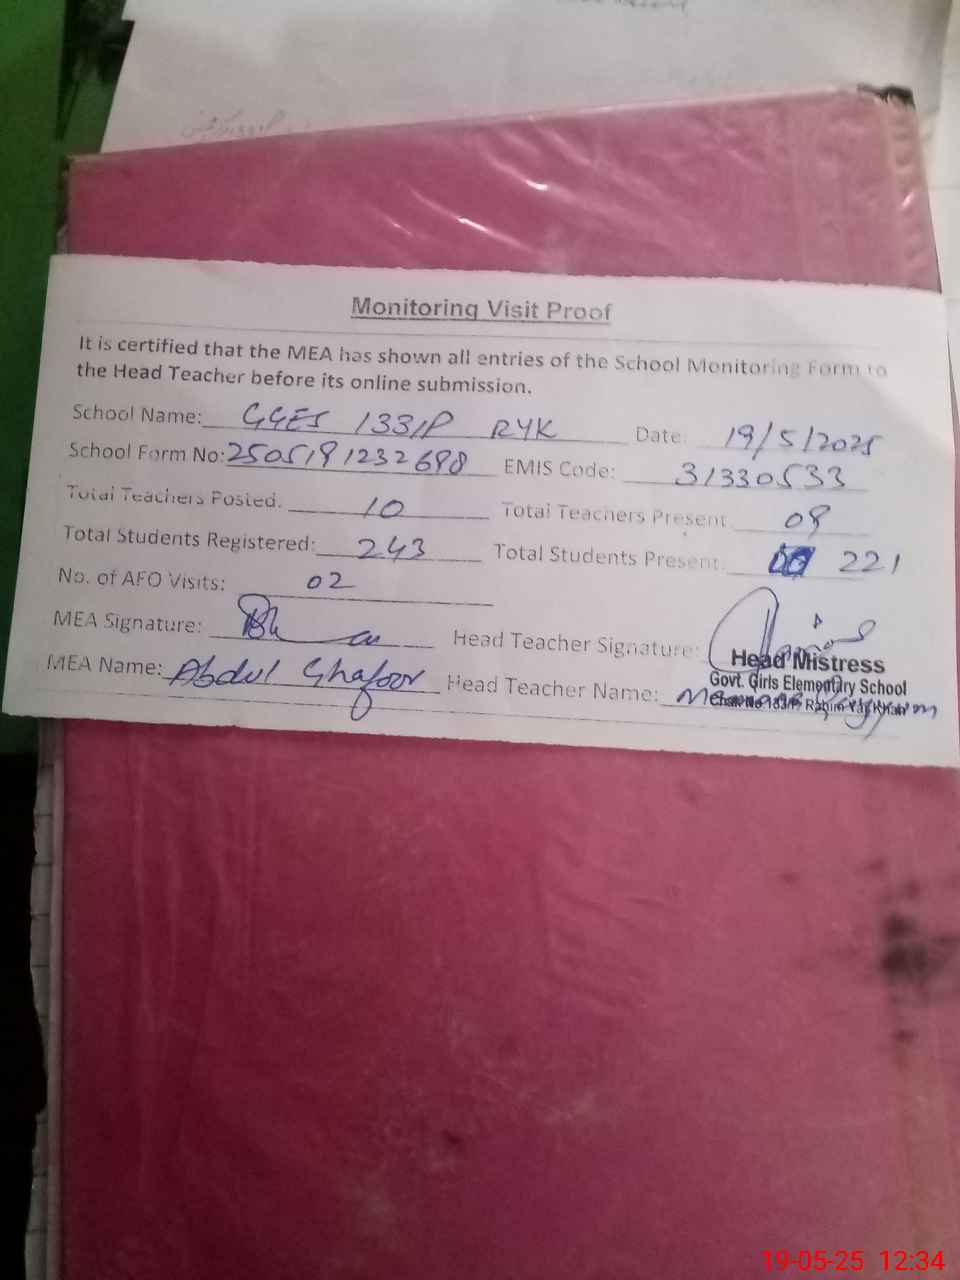 Monitoring Visit Proof
It is certified that the MEA has shown all entries of the School Monitoring Form to
the Head Teacher before its online submission.
School Name: GGES 133/P RYK Date: 19/5/2025
School Form No: 2505191232698 EMIS Code: 31330533
Total Teachers Posted: 10 Total Teachers Present 08
Total Students Registered: 243 Total Students Present: 221
No. of AFO Visits: 02
MEA Signature: Head Teacher Signature:
Head Mistress
Govt. Girls Elementary School
MEA Name: Abdul Ghafoor Head Teacher Name:
Chak No 133/P Rahim Yar Khan
19-05-25 12:34